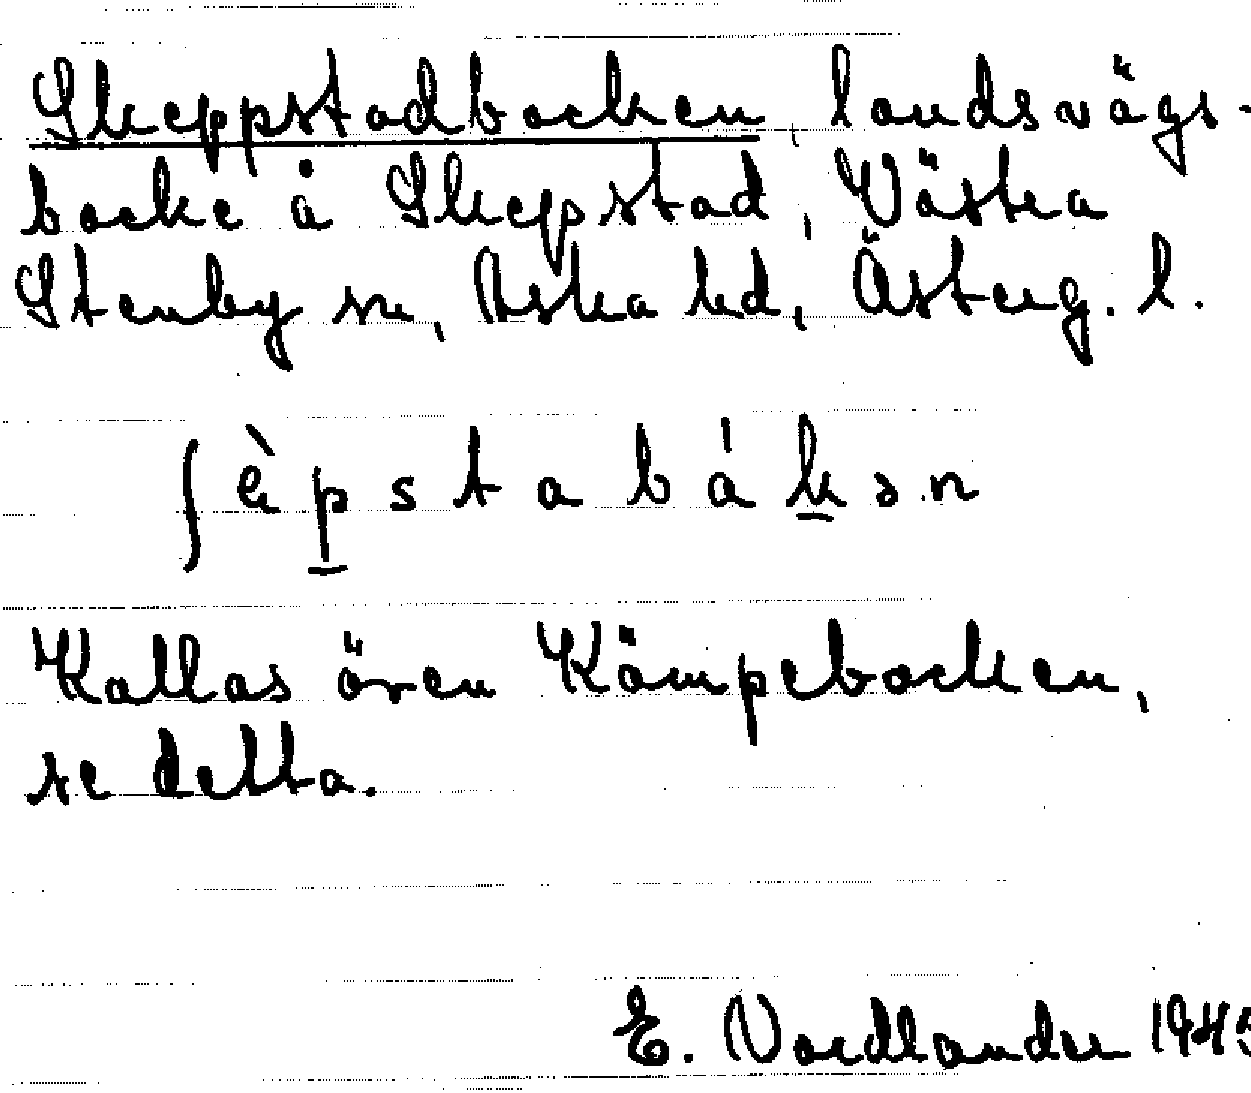 Skeppstadbacken, landsvägs-
backe å Skepstad, Västra
Stenby sn, Aska hd, Österg. l.
ʃèp̲stabák̲ən
Kallas även Kämpebacken,
se detta.
E. Nordlander